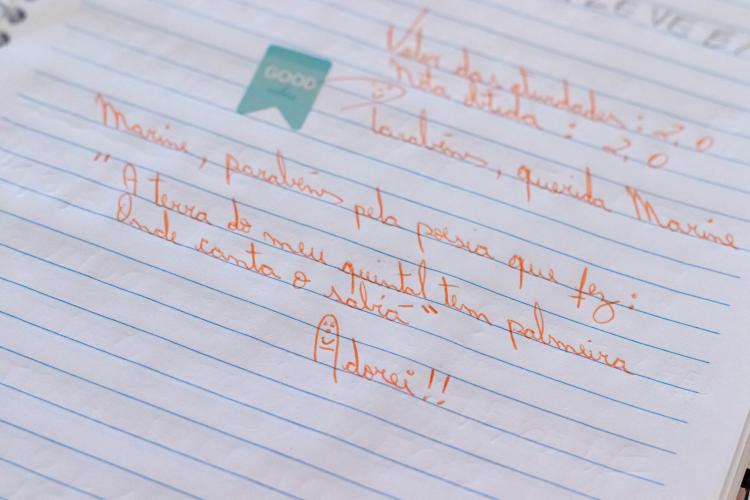 GOOD
Valor das atividades: 2,0
Nota obtida: 2,0
Parabéns, querida Marine
Marine, parabéns pela poesia que fez:
"A terra do meu quintal tem palmeira
Onde canta o sabiá"
Adorei!!